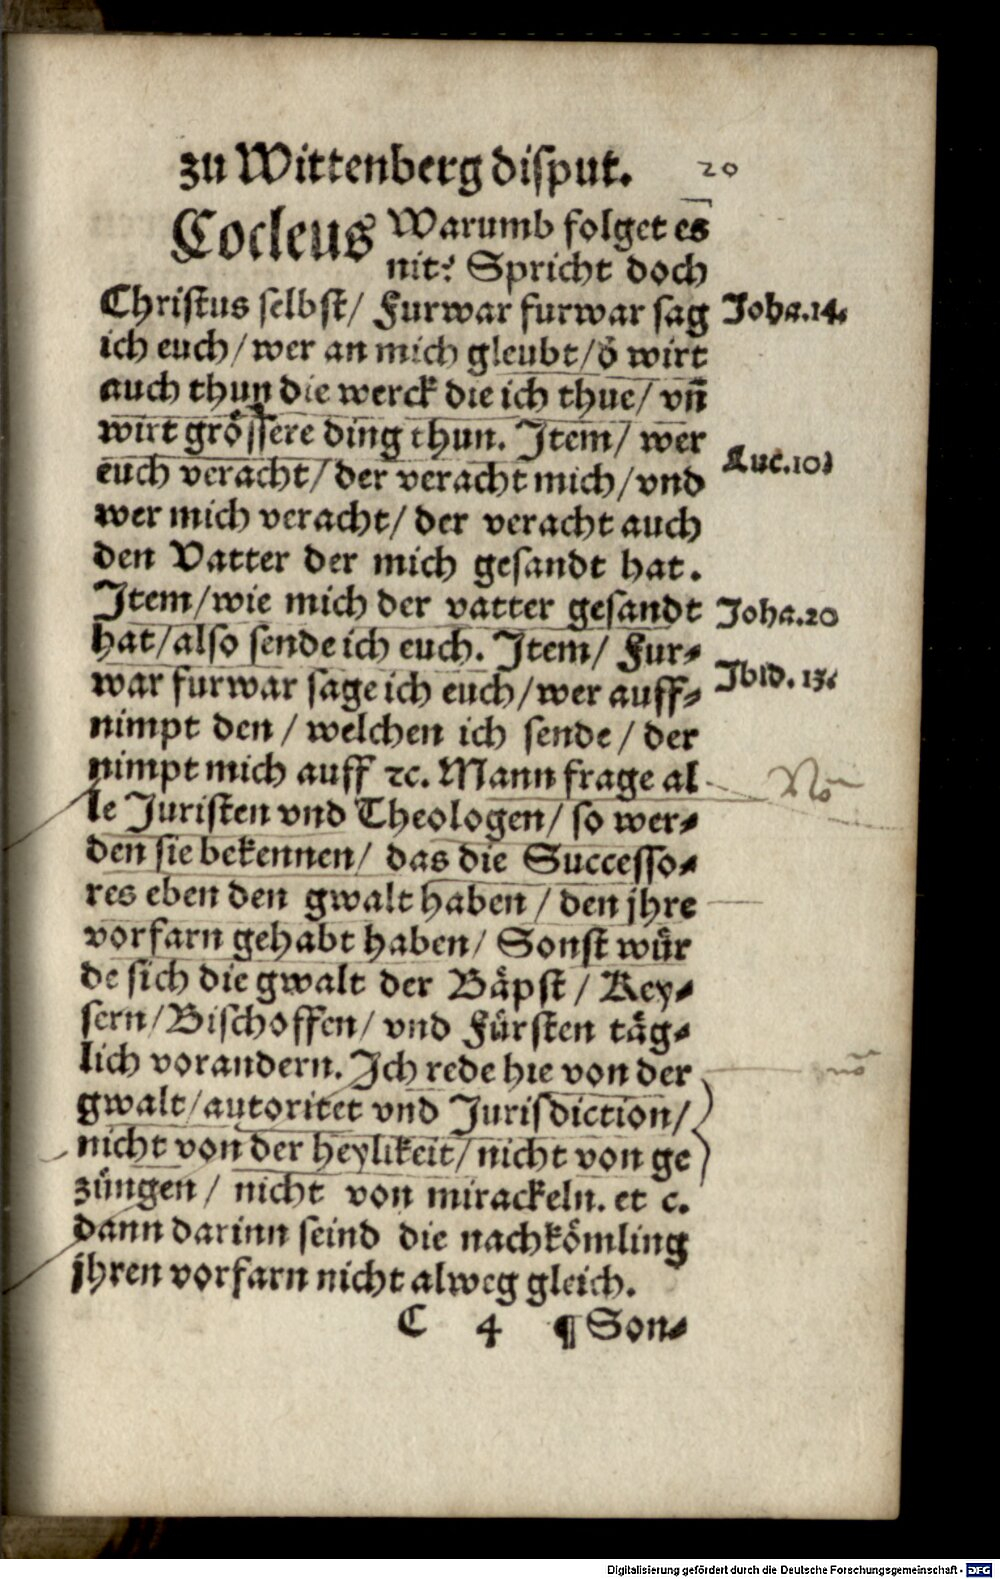 zu Wittenberg disput. 20
Cocleus Warumb folget es
nit? Spricht doch
Christus selbst/ Furwar furwar sag Joha.14.
ich euch/ wer an mich gleubt/ ð wirt
auch thun die werck die ich thue/ vñ
wirt grössere ding thun. Item/ wer
euch veracht/ der veracht mich/ vnd Luc.10.
wer mich veracht/ der veracht auch
den Vatter der mich gesandt hat.
Item/ wie mich der vatter gesandt Joha.20
hat/ also sende ich euch. Item/ Fur-
war furwar sage ich euch/ wer auff- Ibid. 13.
nimpt den / welchen ich sende / der
nimpt mich auff ꝛc. Mann frage al
le Juristen vnd Theologen/ so wer-
den sie bekennen/ das die Successo-
res eben den gwalt haben / den jhre
vorfarn gehabt haben/ Sonst wür
de sich die gwalt der Bäpst / Key-
sern/ Bischoffen/ vnd Fürsten täg-
lich vorandern. Ich rede hie von der
gwalt/ autoritet vnd Jurisdiction/
nicht von der heylikeit/ nicht von ge
züngen / nicht von mirackeln. et c.
dann darinn seind die nachkömling
jhren vorfarn nicht alweg gleich.
C 4 ¶ Son-
Digitalisierung gefördert durch die Deutsche Forschungsgemeinschaft - DFG